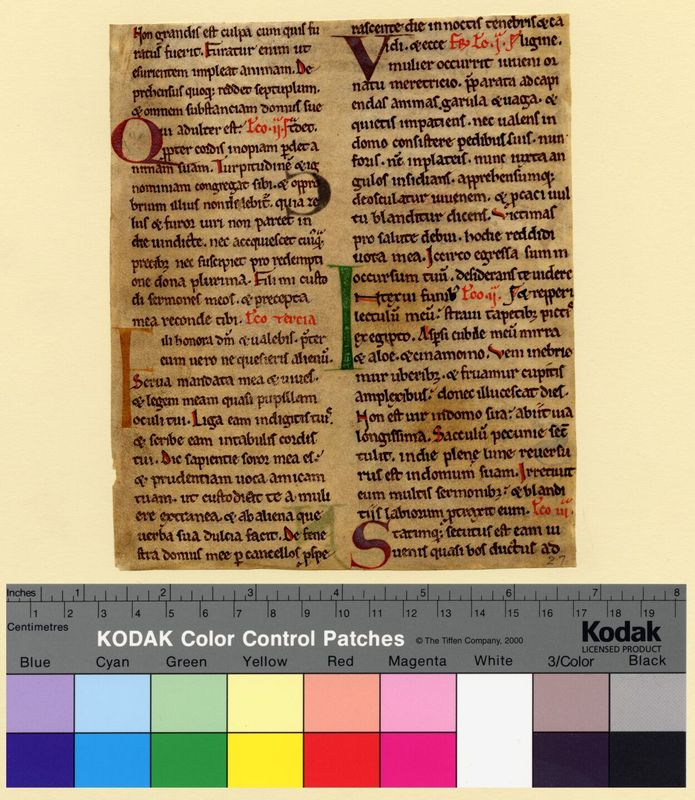 Non grandis est culpa cum quis fu
ratus fuerit. Furatur enim ut
esurientem impleat animam. De
prehensus quoq; reddet septuplum.
& omnem substantiam domus sue
Qui adulter est. Lco. ij.
Propter cordis inopiam pdet a
nimam suam. Turpitudinē & ig
nominiam congregat sibi. & oppro
brium illius non delebit̄. quia ze
lus & furor uiri non parcet in
die uindicte. nec acquiescet cuiq̄;
precib; nec suscipiet pro redempti
one dona plurima. Fili mi custo
di sermones meos. & precepta
mea reconde tibi. Lco tercia
Fili honora dm̄ & ualebis. p̄ter
eum uero ne quesieris alienū.
Serua mandata mea & uiues.
& legem meam quasi pupillam
oculi tui. Liga eam in digitis tuis.
& scribe eam in tabulis cordis
tui. Dic sapientie soror mea es.
& prudentiam uoca amicam
tuam. ut custodiat te a muli
ere extranea. & ab aliena que
uerba sua dulcia facit. De fene
stra domus mee p cancellos pspe
rascente die in noctis tenebris & ca
ligine. Lco. ij.
Vidi. & ecce
mulier occurrit iuueni or
natu meretricio. p̄parata ad capi
endas animas. garula & uaga. &
quietis impatiens. nec ualens in
domo consistere pedibus suis. nun
foris. nc̄ in plateis. nunc iuxta an
gulos insidians. apprehensumq;
deosculatur iuuenem. & pcaci uul
tu blanditur dicens. Victimas
pro salute debui. hodie reddidi
uota mea. Iccirco egressa sum in
occursum tuū. desiderans te uidere
& reperi
Intexui funib; Lco. ij.
lectulū meū. straui tapetib; picti
ex egipto. Aspsi cubile meū mirra
& aloe. & cinamomo. Veni inebrie
mur uberib; & fruamur cupitis
amplexibus. donec illucescat dies.
Non est uir in domo sua. abiit uia
longissima. Sacculū pecunie secū
tulit. in die plene lune reuersu
rus est in domum suam. Irretiuit
eum multis sermonib;. & blandi
tiis labiorum ptraxit eum. Lco iii.
Statimq; secutus est eam iu
uenis quasi bos ductus ad
27
Inches 1 2 3 4 5 6 7 8
Centimetres 1 2 3 4 5 6 7 8 9 10 11 12 13 14 15 16 17 18 19
KODAK Color Control Patches © The Tiffen Company, 2000 Kodak
LICENSED PRODUCT
Blue Cyan Green Yellow Red Magenta White 3/Color Black